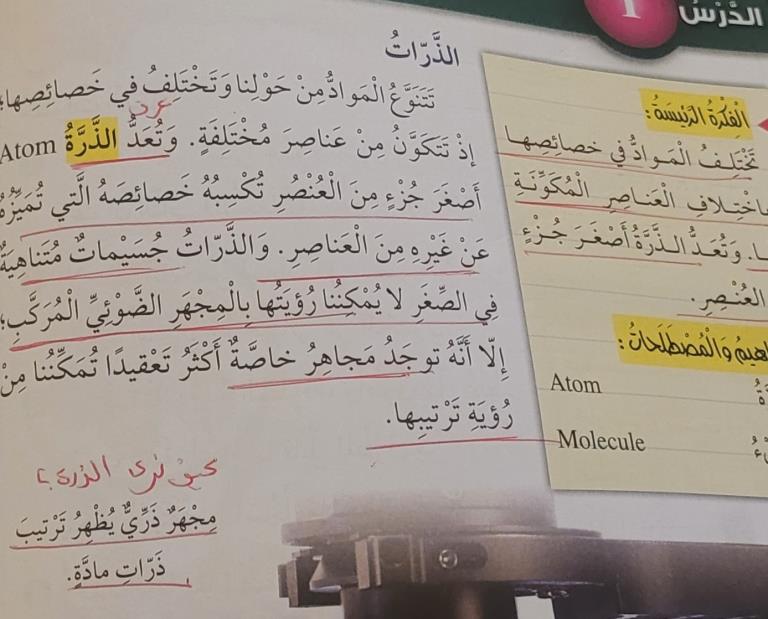 الدَّرْسُ 1
الذَّرّاتُ
تَتَنَوَّعُ الْمَوادُّ مِنْ حَوْلِنا وَتَخْتَلِفُ في خَصائِصِها؛
إِذْ تَتَكَوَّنُ مِنْ عَناصِرَ مُخْتَلِفَةٍ. وَتُعَدُّ الذَّرَّةُ Atom
أَصْغَرَ جُزْءٍ مِنَ الْعُنْصُرِ تُكْسِبُهُ خَصائِصَهُ الَّتي تُمَيِّزُهُ
عَنْ غَيْرِهِ مِنَ الْعَناصِرِ. وَالذَّرّاتُ جُسَيْماتٌ مُتَناهِيَةٌ
فِي الصِّغَرِ لا يُمْكِنُنا رُؤْيَتُها بِالْمِجْهَرِ الضَّوْئِيِّ الْمُرَكَّبِ؛
إِلّا أَنَّهُ توجَدُ مَجاهِرُ خاصَّةٌ أَكْثَرُ تَعْقيدًا تُمَكِّنُنا مِنْ
رُؤْيَةِ تَرْتيبِها.
نرى الذرة؟
مِجْهَرٌ ذَرِّيٌّ يُظْهِرُ تَرْتيبَ
ذَرّاتِ مادَّةٍ.
الْفِكْرَةُ الرَّئيسَةُ:
تَخْتَلِفُ الْمَوادُّ في خصائِصِها
بِاخْتِلافِ الْعَناصِرِ الْمُكَوِّنَةِ
وَتُعَدُّ الذَّرَّةُ أَصْغَرَ جُزْءٍ
الْعُنْصُرِ.
وَالْمُصْطَلَحاتُ:
Atom
Molecule